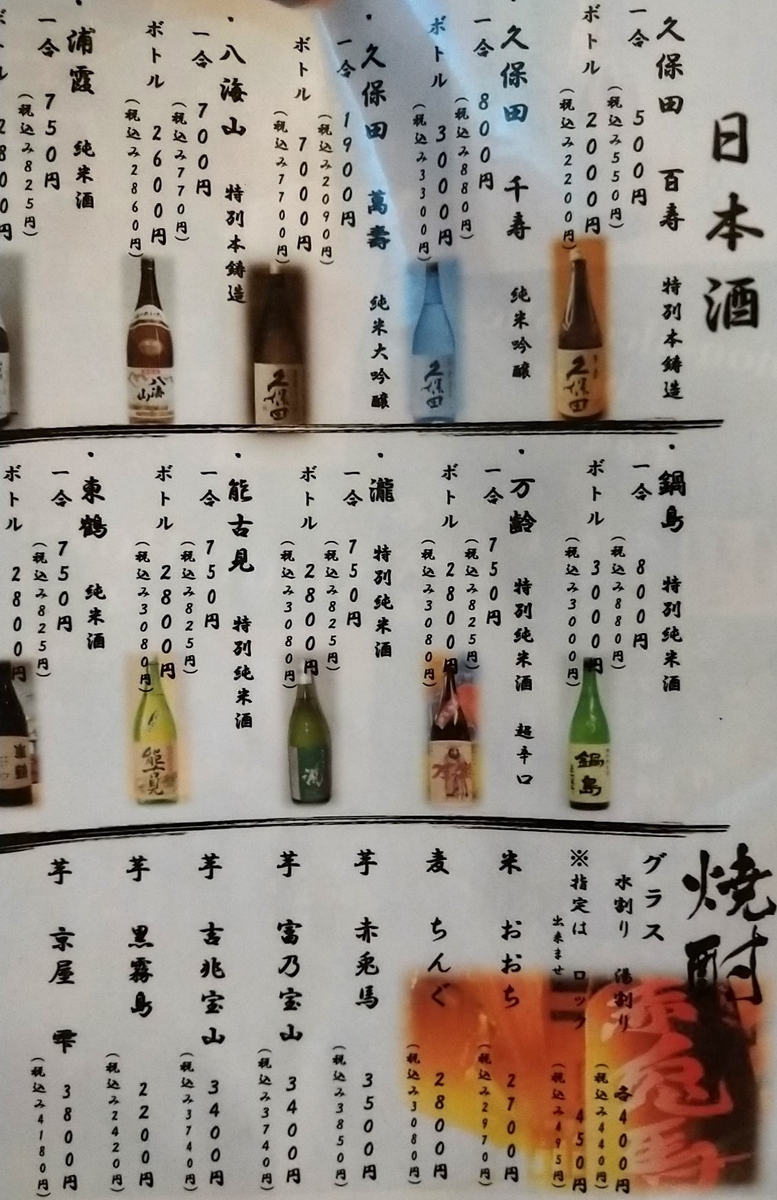 日本酒
・久保田 百寿 特別本鋳造
一合 500円
(税込み550円)
ボトル 2000円
(税込み2200円)
・久保田 千寿 純米吟醸
一合 800円
(税込み880円)
ボトル 3000円
(税込み3300円)
・久保田 萬壽 純米大吟醸
一合 1900円
(税込み2090円)
ボトル 7000円
(税込み7700円)
・八海山 特別本鋳造
一合 700円
(税込み770円)
ボトル 2600円
(税込み2860円)
・浦霞 純米酒
一合 750円
(税込み825円)
ボトル 2800円
久保田
久保田
久保田
八海山
・鍋島 特別純米酒
一合 800円
(税込み880円)
ボトル 3000円
(税込み3000円)
・万齢 特別純米酒 超辛口
一合 750円
(税込み825円)
ボトル 2800円
(税込み3080円)
・瀧 特別純米酒
一合 750円
(税込み825円)
ボトル 2800円
(税込み3080円)
・能古見 特別純米酒
一合 750円
(税込み825円)
ボトル 2800円
(税込み3080円)
・東鶴 純米酒
一合 750円
(税込み825円)
ボトル 2800円
鍋島
瀧
能古見
焼酎
グラス
水割り 湯割り 各400円
(税込み440円)
ロック 450円
(税込み495円)
※指定は
出来ませ
赤兎馬
米 おおち 2700円
(税込み2970円)
麦 ちんぐ 2800円
(税込み3080円)
芋 赤兎馬 3500円
(税込み3850円)
芋 富乃宝山 3400円
(税込み3740円)
芋 吉兆宝山 3400円
(税込み3740円)
芋 黒霧島 2200円
(税込み2420円)
芋 京屋 雫 3800円
(税込み4180円)